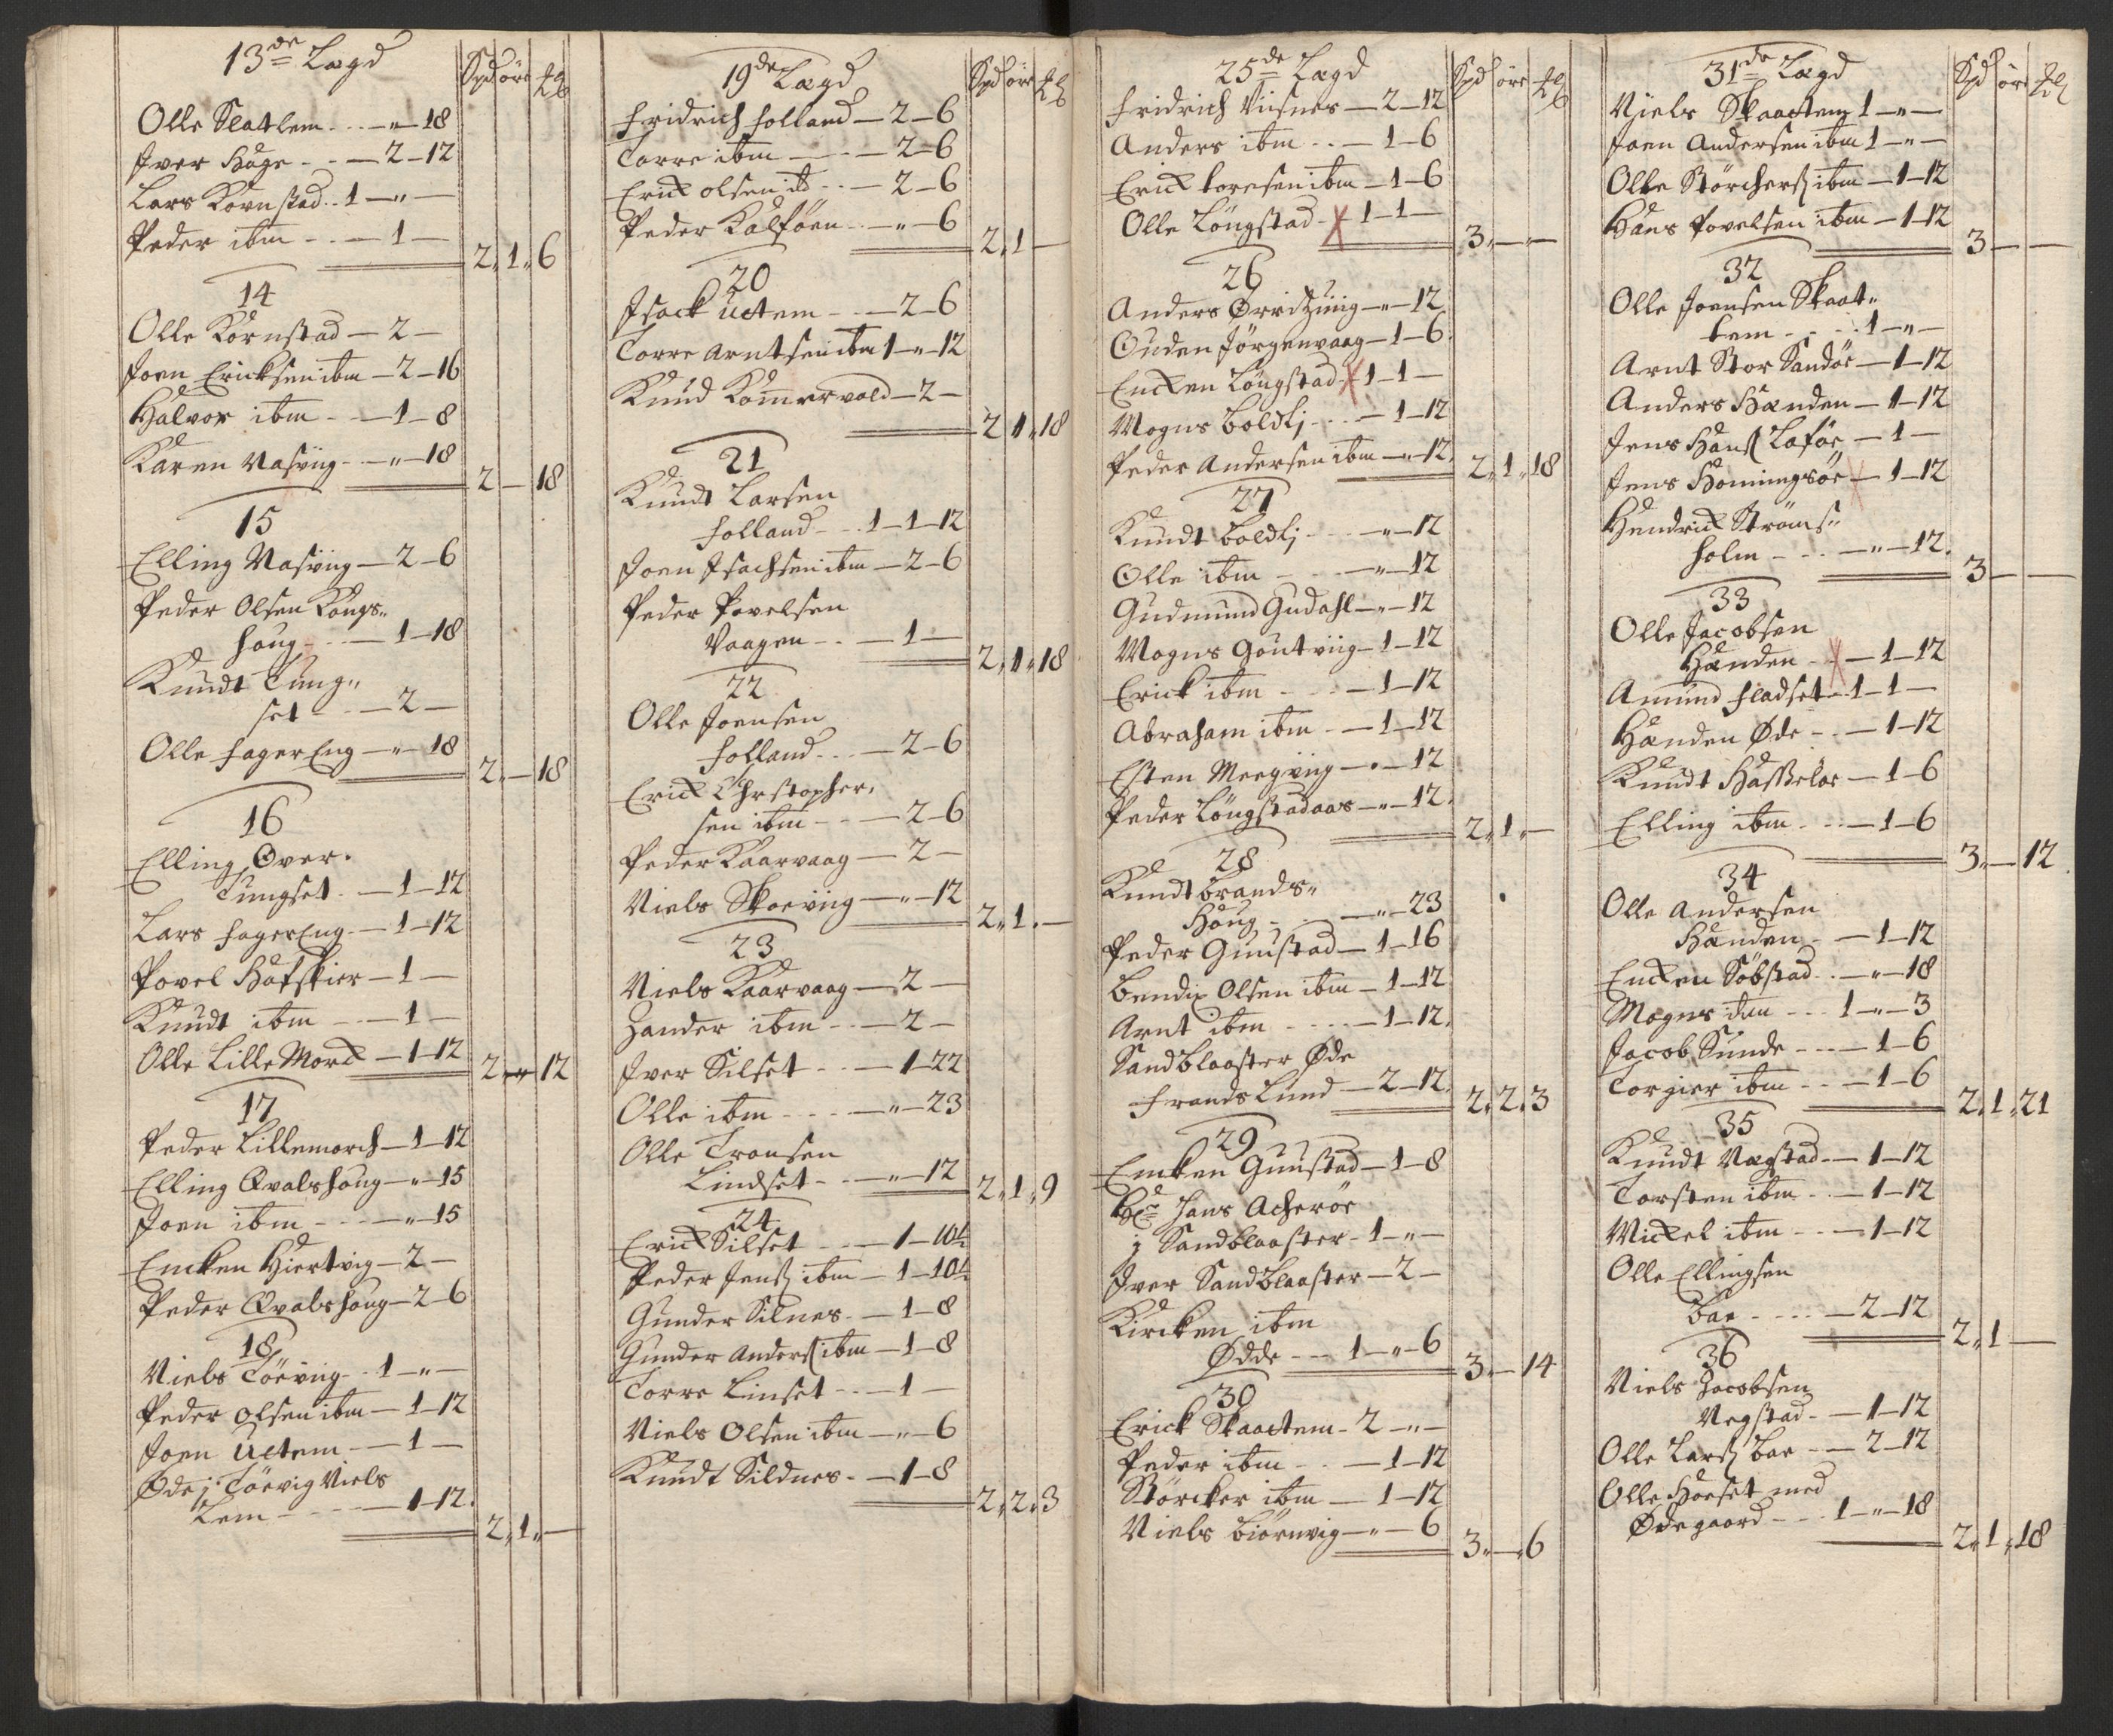 13de Lægd
Spd öre
Olle Slatlem - „ - 18
Iver Hage - 2 - 12
Lars Kornstad 1 - „ -
Peder ibm - 1 -
2 „ 1 „ 6
14
Olle Kornstad - 2 -
Joen Ericksen ibm - 2 - 16
Halvor ibm - 1 - 8
Karen Vasviig - „ - 18
2 - 18
15
Elling Vasviig - 2 - 6
Peder Olsen Kongs„
houg - 1 - 18
Knudt Tung„
set - 2 -
Olle Fager Eng - „ - 18
2 „ - 18
16
Elling Over„
Tungset - 1 - 12
Lars Fager Eng - 1 - 12
Povel Hafskier - 1 -
Knudt ibm - 1 -
Olle Lille Morck - 1 - 12
2 - „ 12
17
Peder Lillemorch - 1 - 12
Elling Qvalshoug - „ - 15
Joen ibm - „ - 15
Encken Hiertvig - 2 -
Peder Qvalshoug - 2 - 6
18
Niels Töeviig - 1 - „ -
Peder Olsen ibm - 1 - 12
Joen Uctem - 1 -
Øde j Töevig Niels
Lem - 1 - 12
2 „ 1 „ -
19de Lægd
Spd öre
Fridrich Folland - 2 - 6
Torre ibm - 2 - 6
Erick Olsen ib - 2 - 6
Peder Kalföen - „ - 6
2 „ 1 -
20
Isack Uctem - 2 - 6
Torre Arntsen ibm 1 - „ - 12
Knud Kommervold - 2 -
2 „ 1 „ 18
21
Knudt Larsen
Folland - 1 - 1 - 12
Joen Isachsen ibm - 2 - 6
Peder Povelsen
Vaagen - 1 -
2 „ 1 „ 18
22
Olle Joensen
Folland - 2 - 6
Erick Chrstopher„
sen ibm - 2 - 6
Peder Kaarvaag - 2 -
Niels Skarviig - „ - 12
2 „ 1 „ -
23
Niels Kaarvaag - 2 -
Zander ibm - 2 -
Iver Silset - 1 - 22
Olle ibm - „ - 23
Olle Tronsen
Lindset - „ - 12
2 „ 1 „ 9
24
Erick Silset - 1 - 10½
Peder Jenß ibm - 1 - 10½
Gunder Silnes - 1 - 8
Gunder Anderß ibm - 1 - 8
Torre Linset - 1 -
Niels Olsen ibm - „ - 6
Knudt Sildnes - 1 - 8
2 „ 2 „ 3
25de Lægd
Spd öre
Fridrich Viisnes - 2 - 12
Anders ibm - 1 - 6
Erick toresen ibm - 1 - 6
Olle Löngstad X 1 - 1 -
3 „ - „ -
26
Anders Ørridtzviig - „ - 12
Ouden Jörgenvaag - 1 - 6
Encken Löngstad X 1 - 1 -
Mogns boldlj - 1 - 12
Peder Andersen ibm - „ - 12
2 „ 1 „ 18
27
Knudt boldlj - „ - 12
Olle ibm - „ - 12
Gudmund Gudahl - „ - 12
Mogns Goutviig - 1 - 12
Erick ibm - 1 - 12
Abraham ibm - 1 - 12
Esten Meegviig - „ - 12
Peder Löngstadaas - „ - 12
2 „ 1 „ -
28
Knudt brands„
Houg - „ - 23
Peder Gunstad - 1 - 16
bendix Olsen ibm - 1 - 12
Arnt ibm - 1 - 12
Sandblaaster Øde
Frands Lund - 2 - 12
2 „ 2 „ 3
29
Encken Gunstad - 1 - 8
Hans Acherøe
j Sandblaaster - 1 - „ -
Iver Sandblaaster - 2 -
Kircken ibm
Ødde - 1 - „ - 6
3 „ - 14
30
Erick Skaactem - 2 - „ -
Peder ibm - 1 - 12
Störcker ibm - 1 - 12
Niels biörnvig - „ - 6
3 „ - „ 6
31de Lægd
Spd öre
Niels Skaactem 1 - „ -
Joen Andersen ibm 1 - „ -
Olle Störcherß ibm - 1 - 12
Hans Povelsen ibm - 1 - 12
3 - -
32
Olle Joensen Skaat„
tem - 1 - „ -
Arnt Stor Sandöe - 1 - 12
Anders Hænden - 1 - 12
Jens Hanß Laföe - 1 -
Jens Honningsöe - 1 - 12
Hendrick Ströms„
holm - „ - 12
3 - -
33
Olle Jacobsen
Hænden X - 1 - 12
Amund Fladset - 1 - 1 -
Hænden Øde - 1 - 12
Knudt Hasseløe - 1 - 6
Elling ibm - 1 - 6
3 „ - 12
34
Olle Andersen
Hænden - 1 - 12
Encken Söbstad - „ - 18
Mogns ibm - 1 - „ - 3
Jacob Sunde - 1 - 6
Torgier ibm - 1 - 6
2 „ 1 „ 21
35
Knudt Vægstad - 1 - 12
Torsten ibm - 1 - 12
Mickel ibm - 1 - 12
Olle Ellingsen
bae - 2 - 12
2 „ 1 -
36
Niels Jacobsen
Vegstad - 1 - 12
Olle Larß bae - 2 - 12
Olle Hoeset med
Ødegaard - 1 - „ - 18
2 „ 1 „ 18